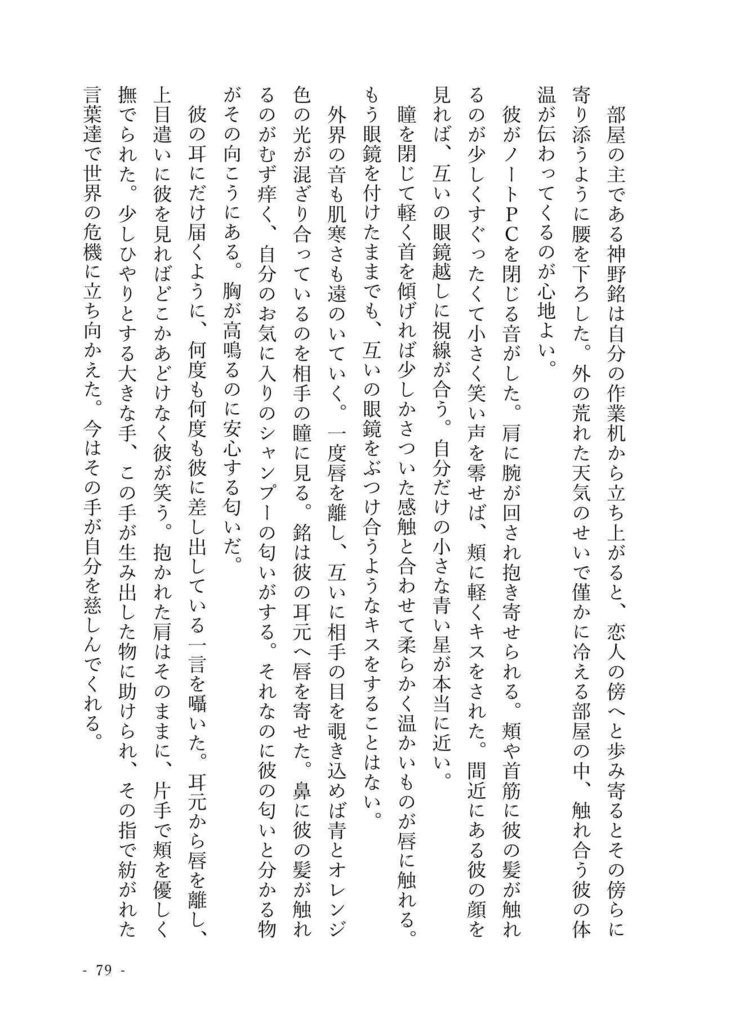 部屋の主である神野銘は自分の作業机から立ち上がると、恋人の傍へと歩み寄るとその傍らに
寄り添うように腰を下ろした。外の荒れた天気のせいで僅かに冷える部屋の中、触れ合う彼の体
温が伝わってくるのが心地よい。
　彼がノートPCを閉じる音がした。肩に腕が回され抱き寄せられる。頬や首筋に彼の髪が触れ
るのが少しくすぐったくて小さく笑い声を零せば、頬に軽くキスをされた。間近にある彼の顔を
見れば、互いの眼鏡越しに視線が合う。自分だけの小さな青い星が本当に近い。
　瞳を閉じて軽く首を傾げれば少しかさついた感触と合わせて柔らかく温かいものが唇に触れる。
もう眼鏡を付けたままでも、互いの眼鏡をぶつけ合うようなキスをすることはない。
　外界の音も肌寒さも遠のいていく。一度唇を離し、互いに相手の目を覗き込めば青とオレンジ
色の光が混ざり合っているのを相手の瞳に見る。銘は彼の耳元へ唇を寄せた。鼻に彼の髪が触れ
るのがむず痒く、自分のお気に入りのシャンプーの匂いがする。それなのに彼の匂いと分かる物
がその向こうにある。胸が高鳴るのに安心する匂いだ。
　彼の耳にだけ届くように、何度も何度も彼に差し出している一言を囁いた。耳元から唇を離し、
上目遣いに彼を見ればどこかあどけなく彼が笑う。抱かれた肩はそのままに、片手で頬を優しく
撫でられた。少しひやりとする大きな手、この手が生み出した物に助けられ、その指で紡がれた
言葉達で世界の危機に立ち向かえた。今はその手が自分を慈しんでくれる。
- 79 -